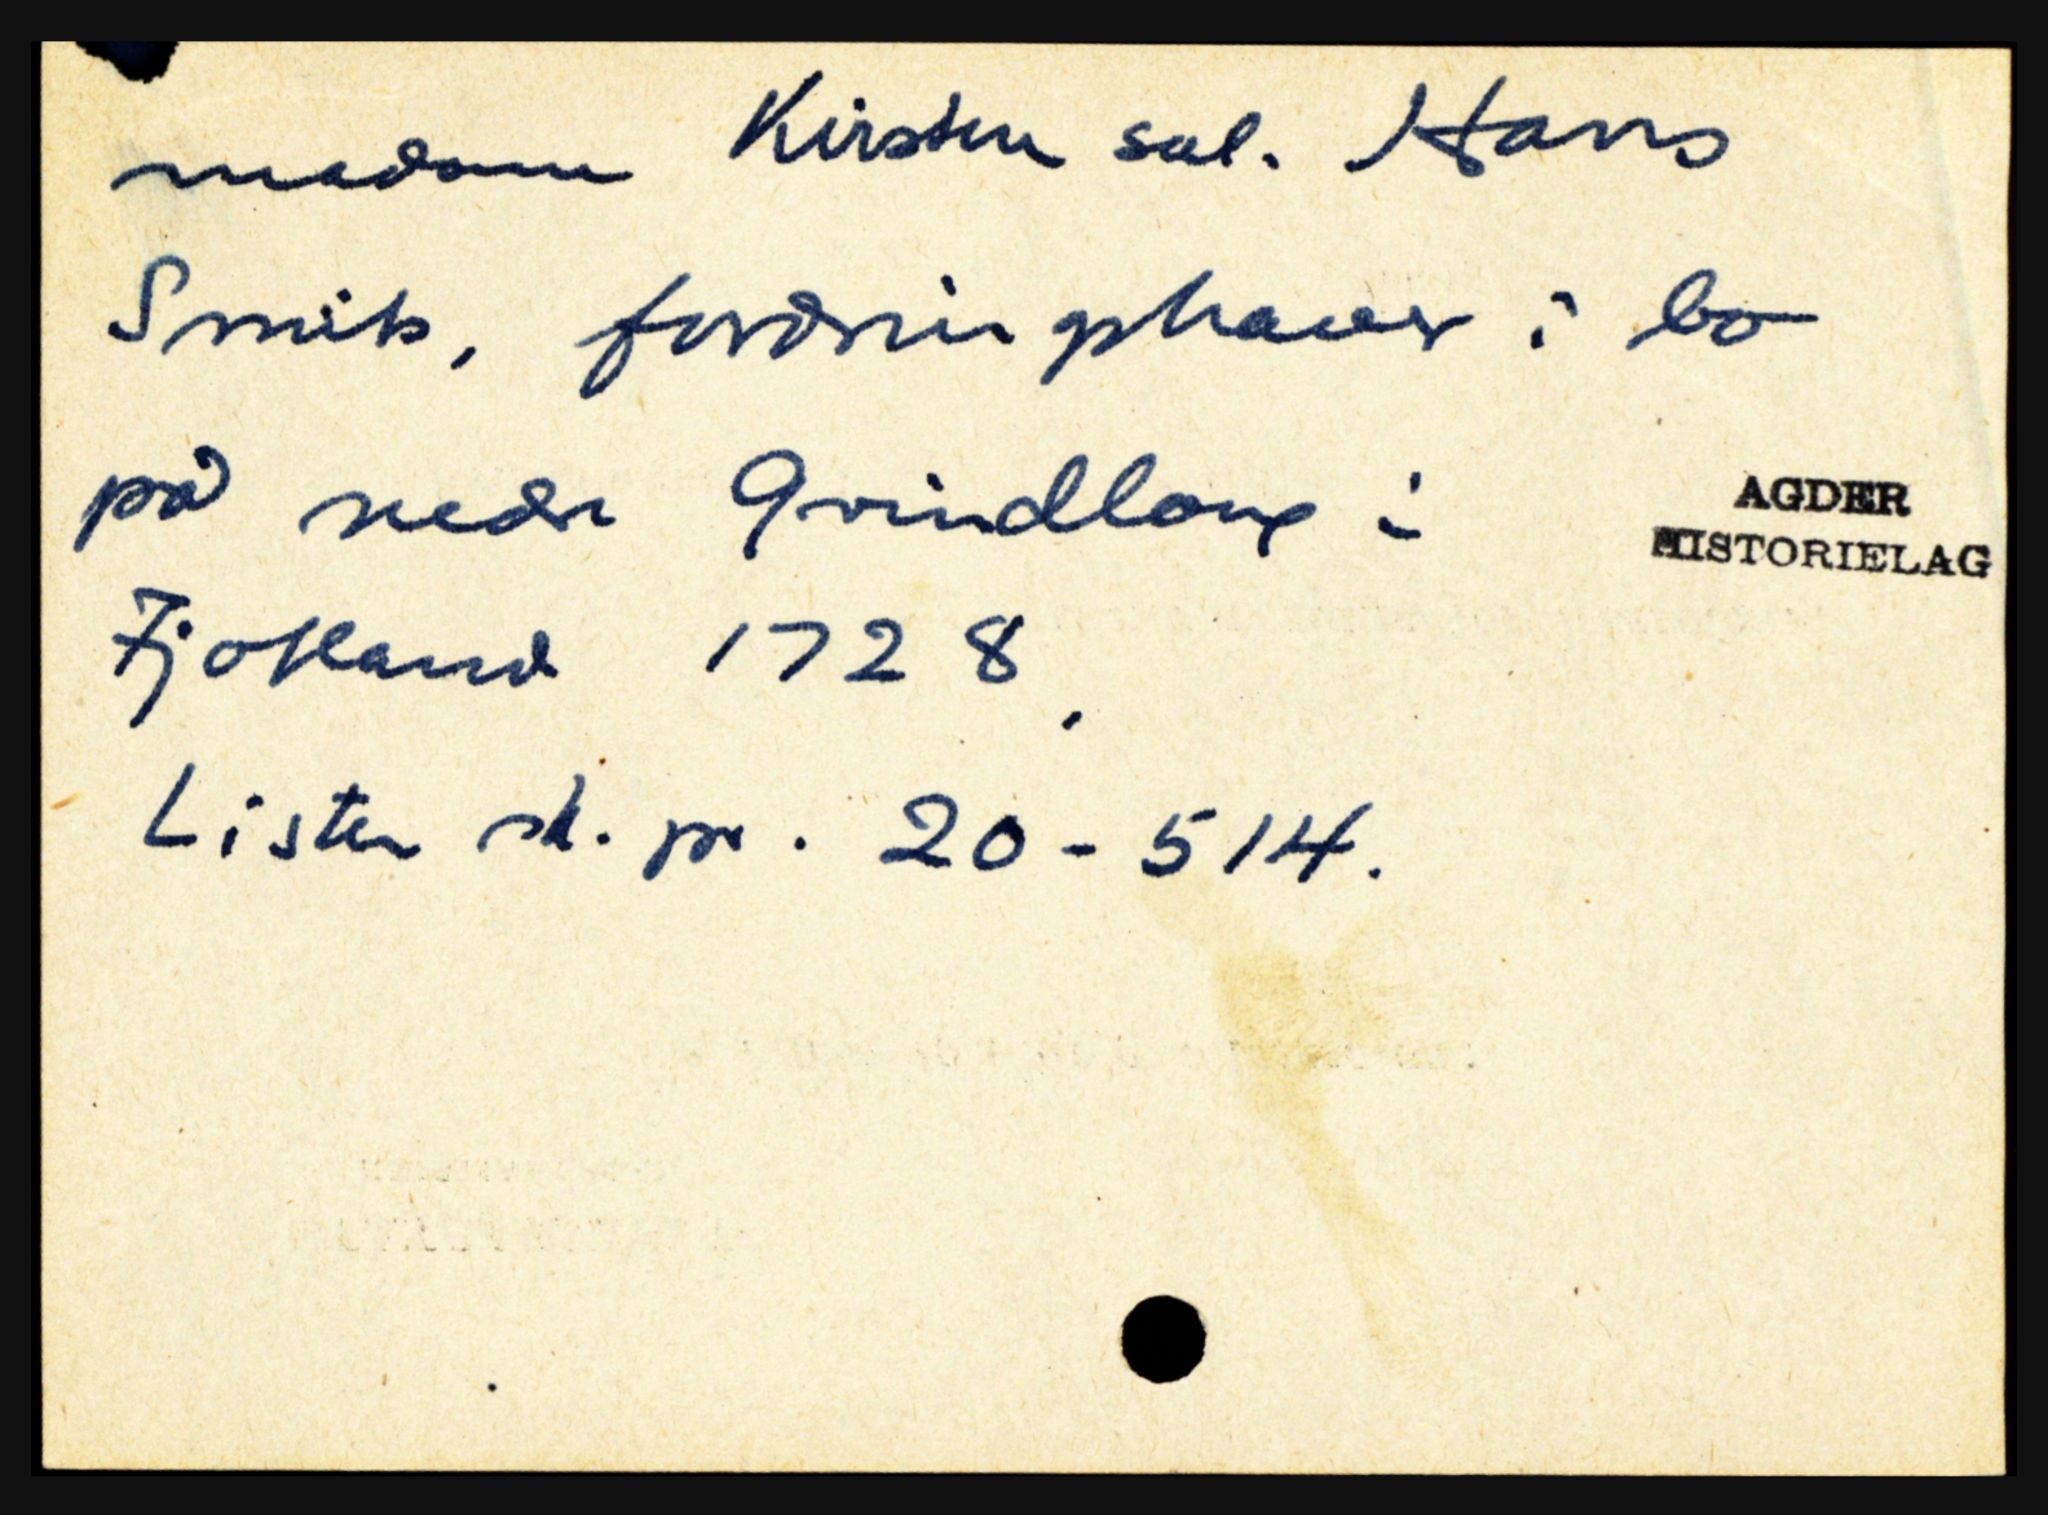 madam Kirsten sal. Hans
Smits, fordringshaver i bo
på nedr Qvindlong i
Fjotland 1728.
Lister sk. pr. 20-514.
AGDER
HISTORIELAG